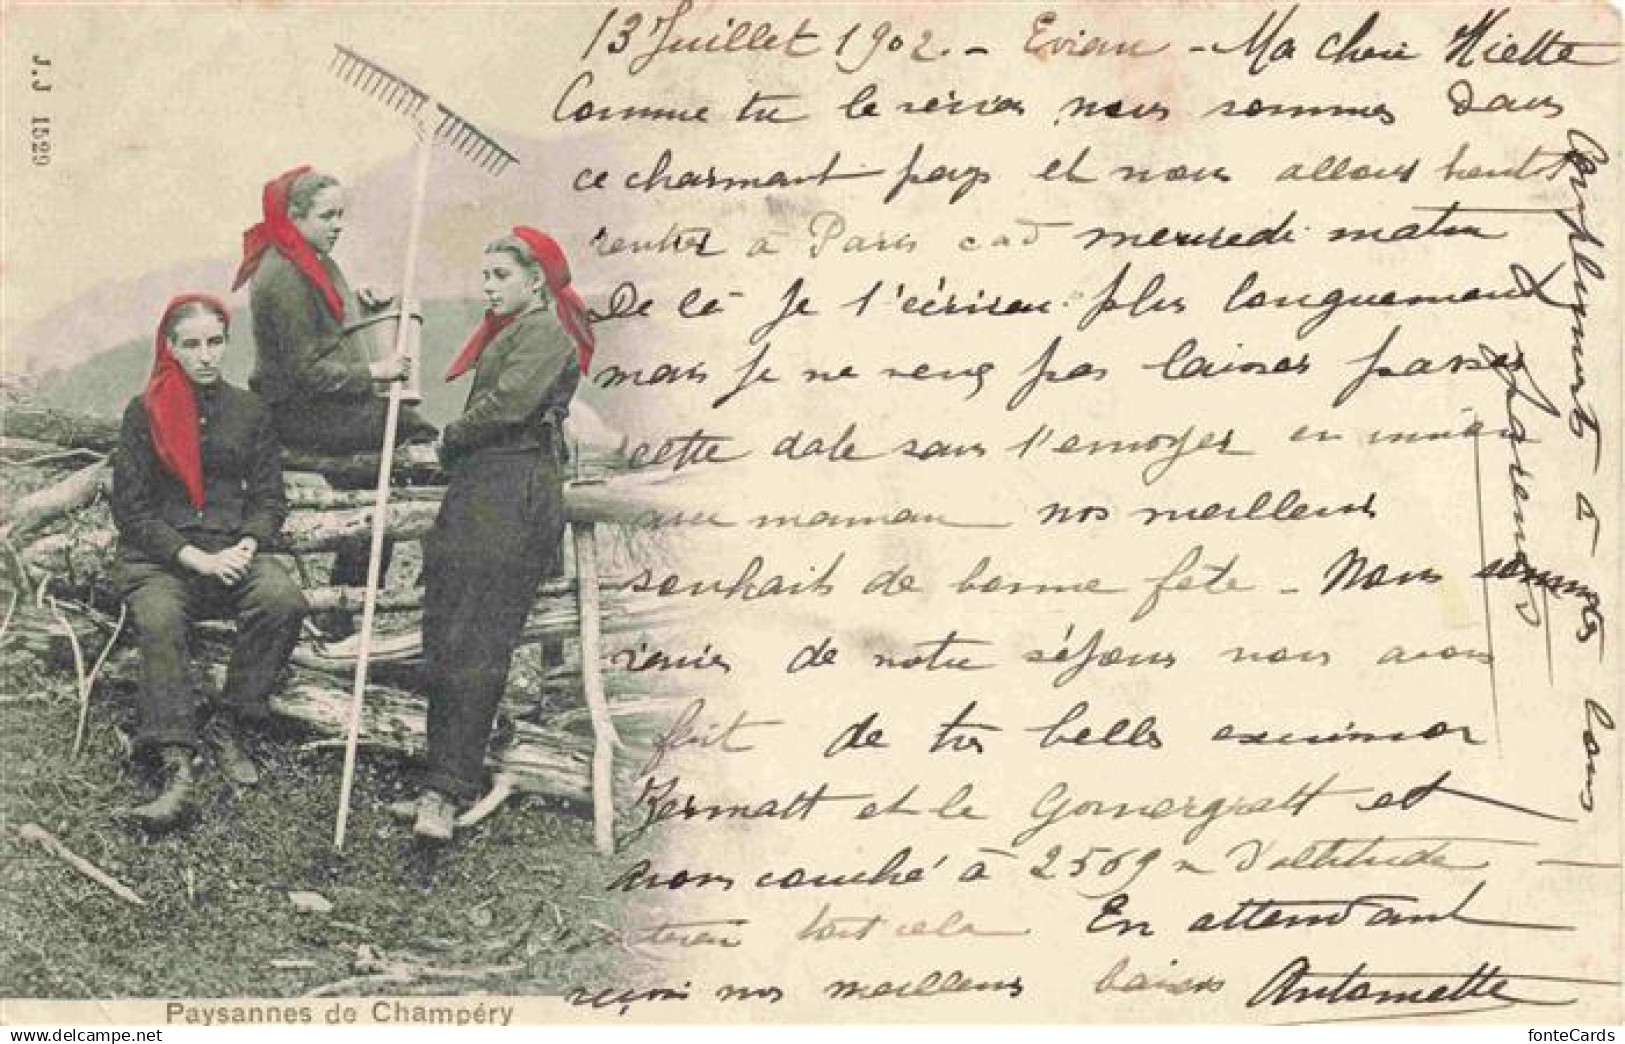 J.J. 1529
13 Juillet 1902. - Evian - Ma chère
Comme tu le nous sommes dans
ce charmant pays et nous allons bientôt
rentrer à Paris càd mercredi matin
De là je t'écrirai plus longuement
mais je ne veux pas laisser passer
cette date sans t'envoyer en
avec maman nos meilleurs
souhaits de bonne fête - Nous sommes
ravies de notre séjour nous avons
fait de très belles excursions
Zermatt et le Gornergratt et
avons couché à 2569 m d'altitude -
tout cela. En attendant
reçois nos meilleurs baisers Antoinette
Compliments à tous
Paysannes de Champéry
fonteCards
www.delcampe.net